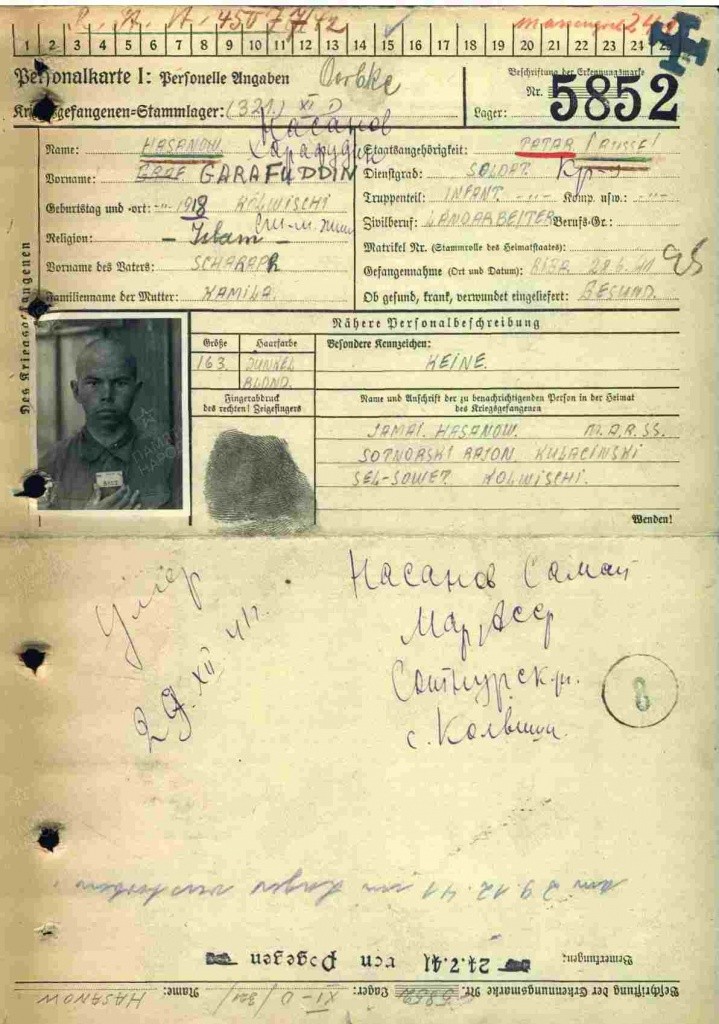 R. A. A. 450 7 7/42
1 2 3 4 5 6 7 8 9 10 11 12 13 14 15 16 17 18 19 20 21 22 23 24 25
Personalkarte I: Personelle Angaben
Kriegsgefangenen-Stammlager: (321) XI D Oerbke
Beschriftung der Erkennungsmarke
Nr. 5852
Lager:
Хасанов
Name: HASANOW
Vorname: GARAFUDDIN
Geburtstag und -ort: -"- 1918 KOLWISCHI
Religion: - Islam -
Vorname des Vaters: SCHARAPH
Familienname der Mutter: KAMILA.
Staatsangehörigkeit: TATAR /RUSSE/
Dienstgrad: SOLDAT. Кр-ц
Truppenteil: INFANT. -"- Komp. usw.: -"-
Zivilberuf: LANDARBEITER Berufs-Gr.:
Matrikel Nr. (Stammrolle des Heimatstaates):
Gefangennahme (Ort und Datum): 28.6.41
Ob gesund, krank, verwundet eingeliefert: GESUND.
Des Kriegsgefangenen
Nähere Personalbeschreibung
Größe Haarfarbe Besondere Kennzeichen:
163. DUNKEL BLOND. KEINE.
Fingerabdruck
des rechten! Zeigefingers
Name und Anschrift der zu benachrichtigenden Person in der Heimat
des Kriegsgefangenen
JAMAI. HASANOW. M.A.R.SS.
SOTNORSKI RAJON KULACINSKI
SEL-SOWET. KOLWISCHI.
Wenden!
Умер
29.XII 41г.
Насанов Самаи
Мар Асср
Сотнурск р.
с. Колвиши.
8
am 29.12.41 im Lager verstorben!
Bemerkungen:
24.7.41 von Pogegen
Beschriftung der Erkennungsmarke Nr. 5852 Lager: XI-D/321 Name: HASANOW